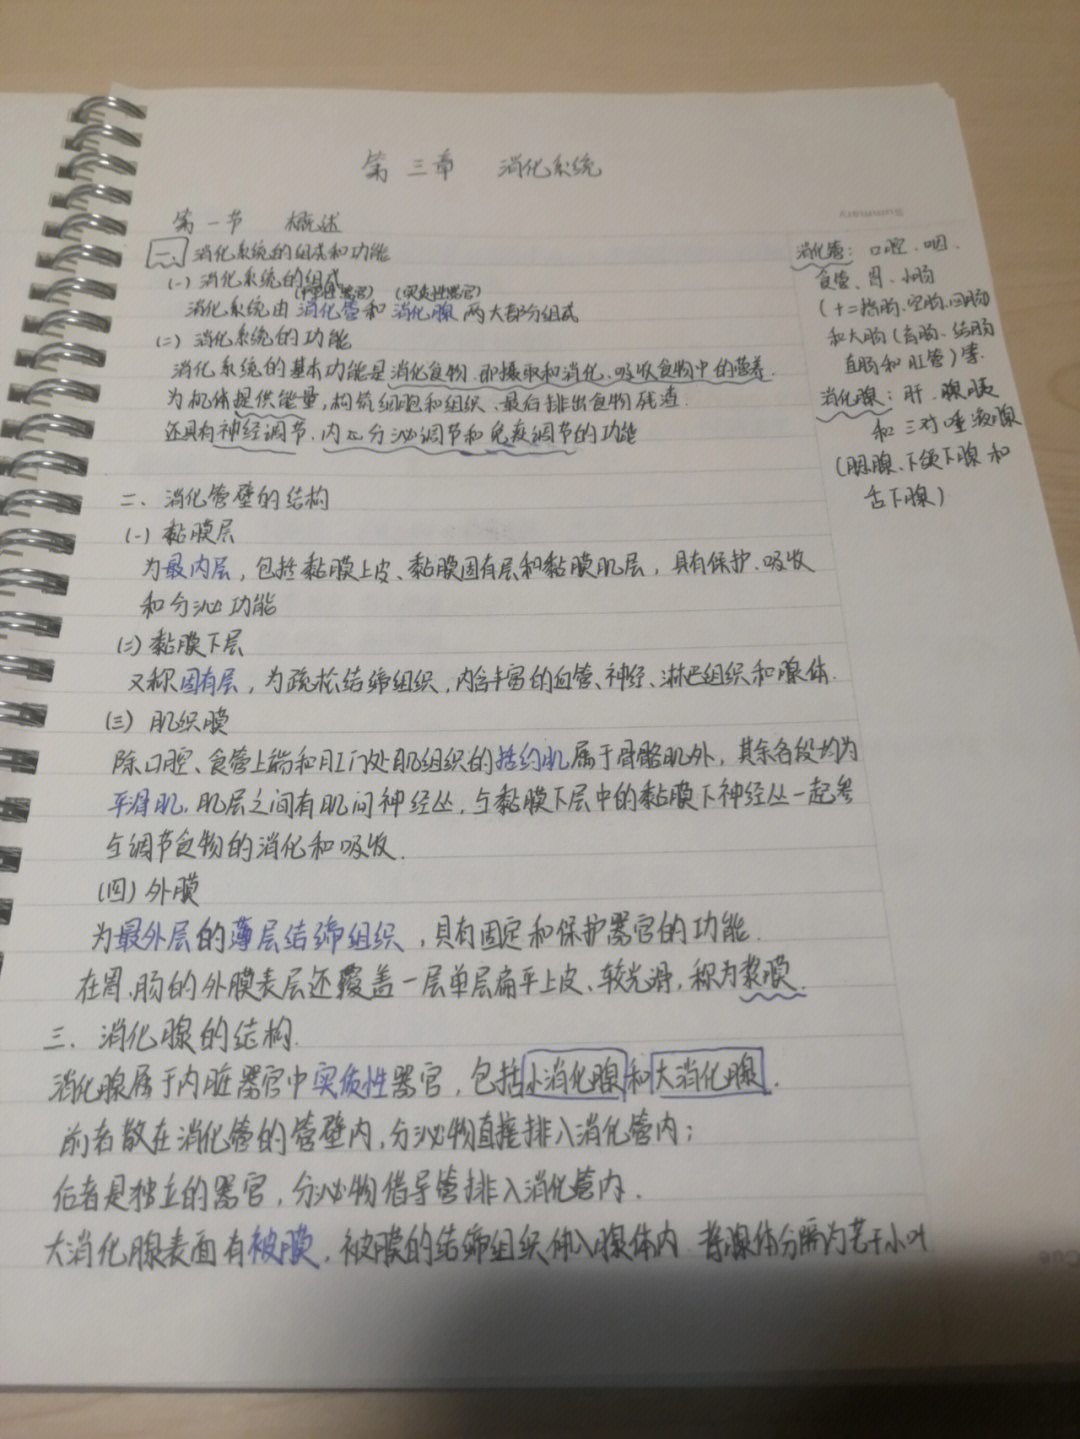 第三章 消化系统
第一节 概述
一、消化系统的组成和功能
(一) 消化系统的组成
(中空性器官) (实质性器官)
消化系统由消化管和消化腺两大部分组成
(二) 消化系统的功能
消化系统的基本功能是消化食物.即摄取和消化、吸收食物中的营养.
为机体提供能量,构筑细胞和组织、最后排出食物残渣.
还具有神经调节、内分泌调节和免疫调节的功能
二、消化管壁的结构
(一) 黏膜层
为最内层,包括黏膜上皮、黏膜固有层和黏膜肌层,具有保护、吸收
和分泌功能
(二) 黏膜下层
又称固有层,为疏松结缔组织,内含丰富的血管、神经、淋巴组织和腺体.
(三) 肌织膜
除口腔、食管上端和肛门处肌组织的括约肌属于骨骼肌外,其余各段均为
平滑肌.肌层之间有肌间神经丛,与黏膜下层中的黏膜下神经丛一起参
与调节食物的消化和吸收.
(四) 外膜
为最外层的薄层结缔组织,具有固定和保护器官的功能.
在胃、肠的外膜表层还覆盖一层单层扁平上皮、较光滑,称为浆膜.
三、消化腺的结构.
消化腺属于内脏器官中实质性器官,包括小消化腺和大消化腺.
前者散在消化管的管壁内,分泌物直接排入消化管内;
后者是独立的器官,分泌物借导管排入消化管内.
大消化腺表面有被膜,被膜的结缔组织伸入腺体内.将腺体分隔为若干小叶
Summary
消化管: 口腔、咽、
食管、胃、小肠
(十二指肠、空肠、回肠)
和大肠(盲肠、结肠
直肠和肛管)等.
消化腺: 肝、胰
和三对唾液腺
(腮腺、下颌下腺和
舌下腺)
Cue